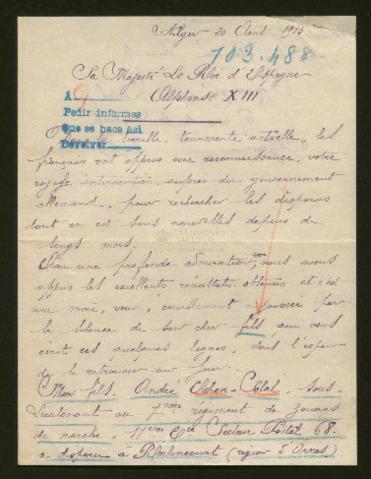 Alger 20 Août 1915
103.488
Sa Majesté Le Roi d'Espagne
Alphonse XIII
A
Pedir informes
Que se hace así
Devolver
la cruelle tourmente actuelle, les
français ont appris avec reconnaissance, votre
royale intervention auprès du gouvernement
Allemand, pour rechercher les disparus
dont on est sans nouvelles depuis de
longs mois.
une profonde admiration, nous avons
appris les excellents résultats obtenus et c'est
une mère, veuve, cruellement angoissée par
le silence de son cher fils, qui vous
écrit ces quelques lignes, dans l'espoir
de le retrouver un jour.
Mon fils, André Cohen-Solal, sous-
lieutenant au 7ème régiment de zouaves
de marche, 11ème Cie Secteur Postal 68.
a disparu à Roclincourt (région d'Arras).